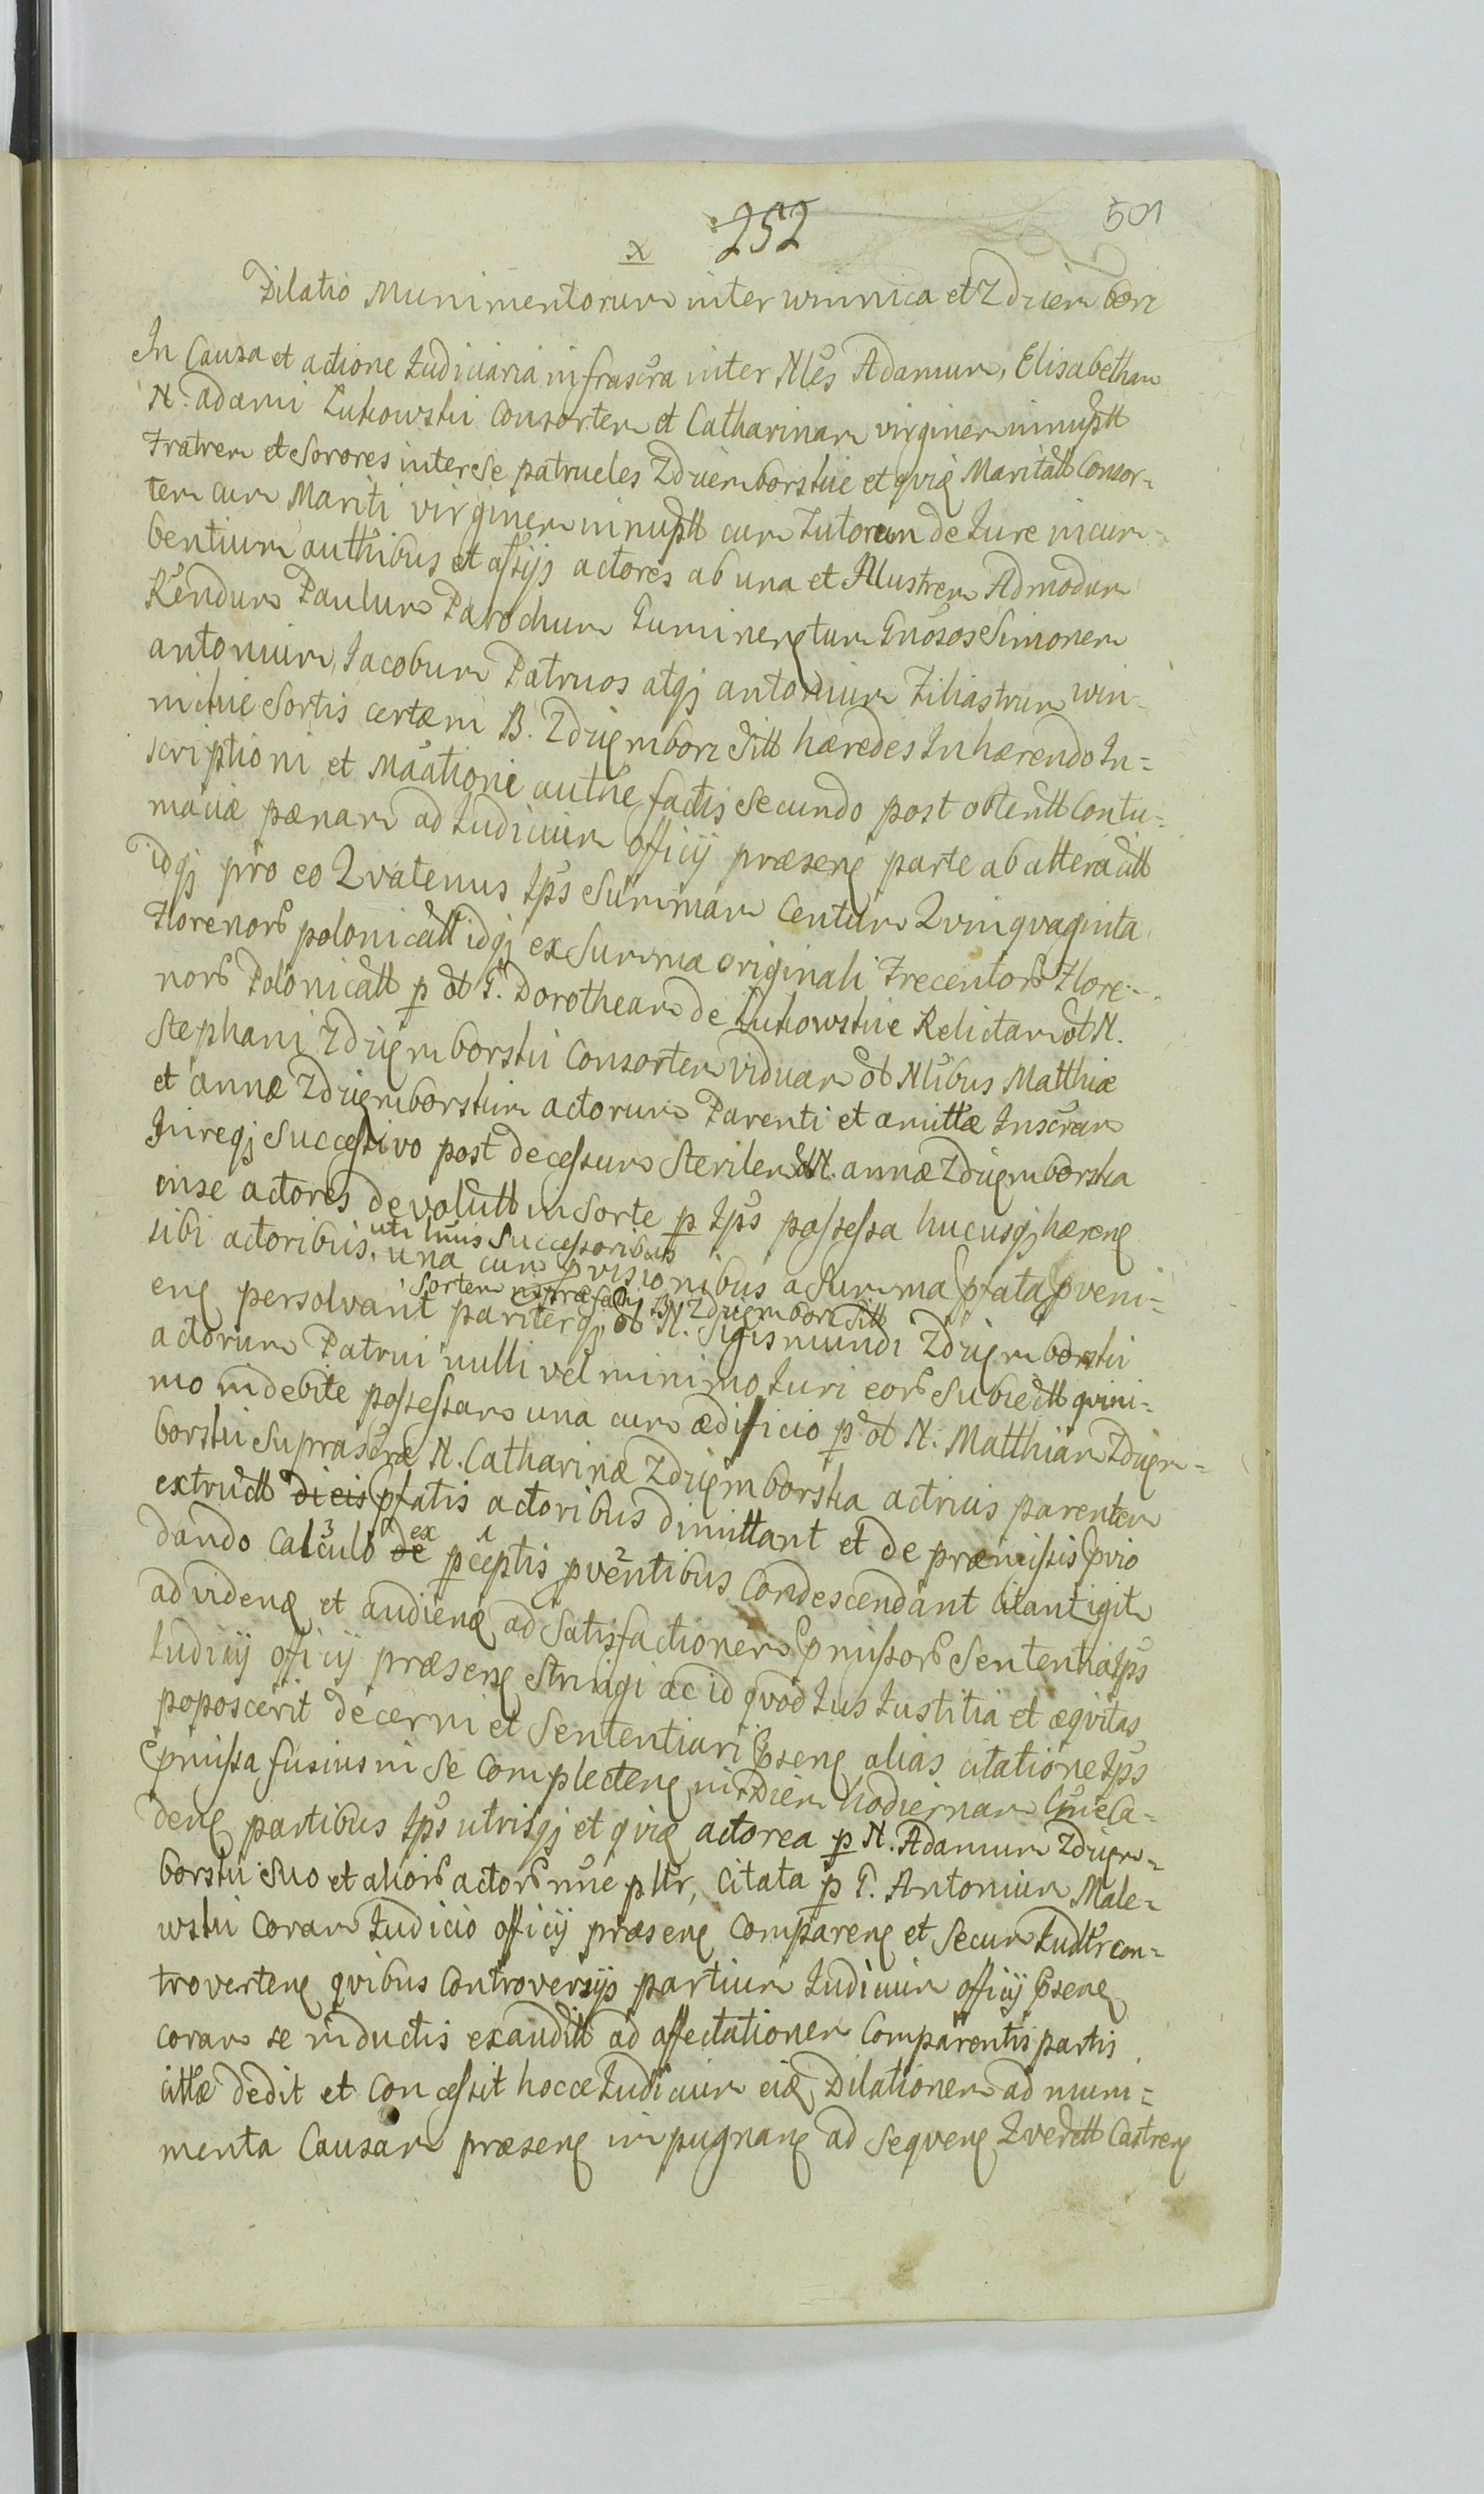 252
501
x
Dilatio Munimentorum inter winnica et Zdziembori
In Causa et actione Judiciaria infrascra inter Nles Adamum, Elisabetham
N. Adami Lukowski Consortem et Catharinam virginem innuptt
Fratrem et Sorores inter se patrueles Zdziemborskie et qvide Maritatt Consor-
tem cum Mariti virginem innuptt cum Tutorum de Jure incum-
bentium authibus et assijs actores ab una et Illustrem Admodum
Rendum Paulum Parochum Gnosos Simonem
antonium, Jacobum Patruos atqj antonium Filiastrum win-
nickie Sortis certæ in B. Zdziembori sitt hæredes Inhærendo In-
scriptioni et Maationi authe factis Secundo post obtentt Contu-
maciæ pænam ad Judicium officij præsens parte ab altera citt
idqj pro eo Qvatenus Ips Summam Centum Qvinqvaginta
Florenor polonicatt idqj ex Summa originali Trecentor Flore-
nor Polonicatt p ol G. Dorotheam de Lukowskie Relictam ol N.
Stephani Zdziemborski Consortem viduam ol Nlibus Matthiæ
et annæ Zdziemborskim actorum Parenti et amittæ Inscram
Jureqj Successivo post decessum Sterilem ol N. annæ Zdziemborska
in se actores devolutt in Sorte p Ips possessa hucusqj hærens
sibi actoribus uti suis Successoribus una cum pvisionibus a Summa pfata pveni-
ens persolvant pariterqj Sortem in præfatis B. Zdziembori sitt ol N. Sigismundi Zdziemborski
actorum Patrui nulli vel minimo Juri eor Subiectt qvini-
mo indebite possessam una cum ædificio p ol N. Matthiam Zdziem-
borski Suprascræ N. Catharinæ Zdziemborska actricis parentem
extructt di eis pfatis actoribus dimittant et de præmissis pvio
dando Calculo de ex pceptis pventibus Condescendant Citant igitr
ad videns et audiens ad Satisfactionem pmissor Sententia Ips
Judicij officij præsens Stringi ac id qvod Jus Justitia et æqvitas
poposcerit decerni et Sententiari psens alias citatione Ips
pmissa fusius in se Complectens in Diem hodiernam Cme Ca-
dens partibus Ips utrisqj et qvide actorea p N. Adamum Zdziem-
borski Suo et alior actor nne pltr, Citata p G. Antonium Male-
wski Coram Judicio officij præsens Comparens et Secum Judltr con-
trovertens qvibus Controversijs partium Judicium officij psens
coram se inductis exauditt ad affectationem Comparentis partis
cittæ dedit et Concessit hocce Judicium eide Dilationem ad muni-
menta Causam præsens impugnans ad Seqvens Qverett Castrens